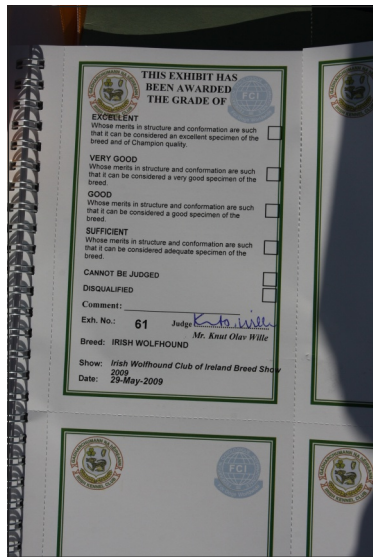 THIS EXHIBIT HAS
BEEN AWARDED
THE GRADE OF
FCI
EXCELLENT
Whose merits in structure and conformation are such
that it can be considered an excellent specimen of the
breed and of Champion quality.
VERY GOOD
Whose merits in structure and conformation are such
that it can be considered a very good specimen of the
breed.
GOOD
Whose merits in structure and conformation are such
that it can be considered a good specimen of the
breed.
SUFFICIENT
Whose merits in structure and conformation are such
that it can be considered adequate specimen of the
breed.
CANNOT BE JUDGED
DISQUALIFIED
Comment:
Exh. No.: 61 Judge
Mr. Knut Olav Wille
Breed: IRISH WOLFHOUND
Show: Irish Wolfhound Club of Ireland Breed Show
2009
Date: 29-May-2009
FCI